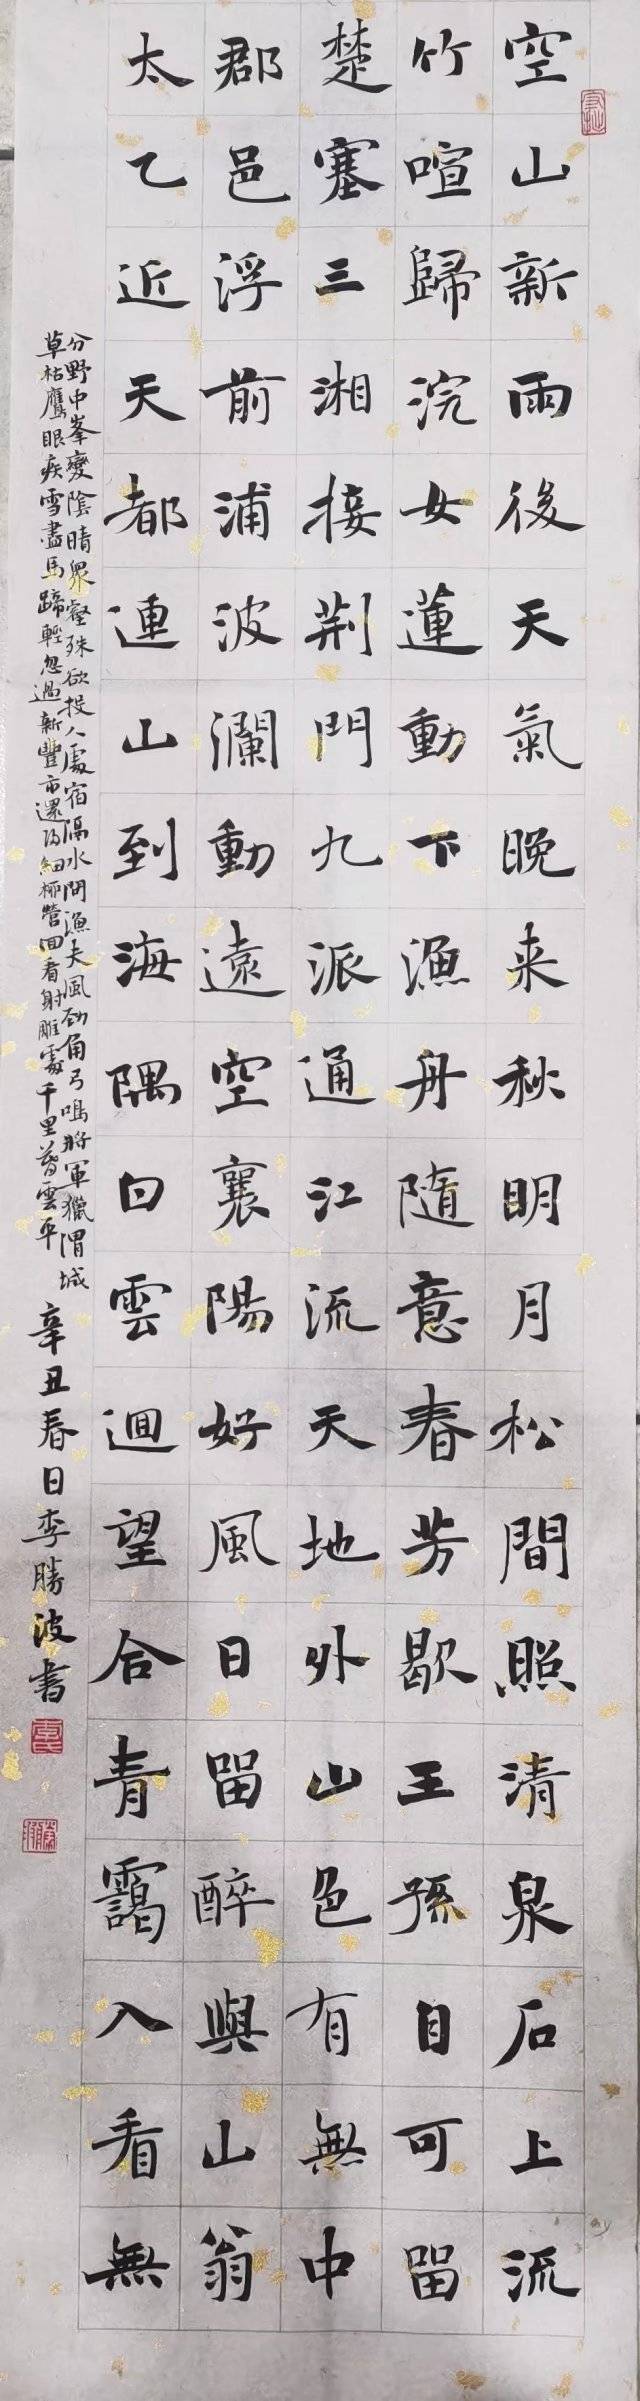 空山新雨後天氣晚来秋明月松間照清泉石上流
竹喧歸浣女蓮動下漁舟隨意春芳歇王孫自可留
楚塞三湘接荆門九派通江流天地外山色有無中
郡邑浮前浦波瀾動遠空襄陽好風日留醉與山翁
太乙近天都連山到海隅白雲迴望合青靄入看無
分野中峯變陰晴衆壑殊欲投人處宿隔水問漁夫風勁角弓鳴將軍獵渭城
草枯鷹眼疾雪盡馬蹄輕忽過新豐市還歸細柳營回看射雕處千里暮雲平 辛丑春日李勝波書